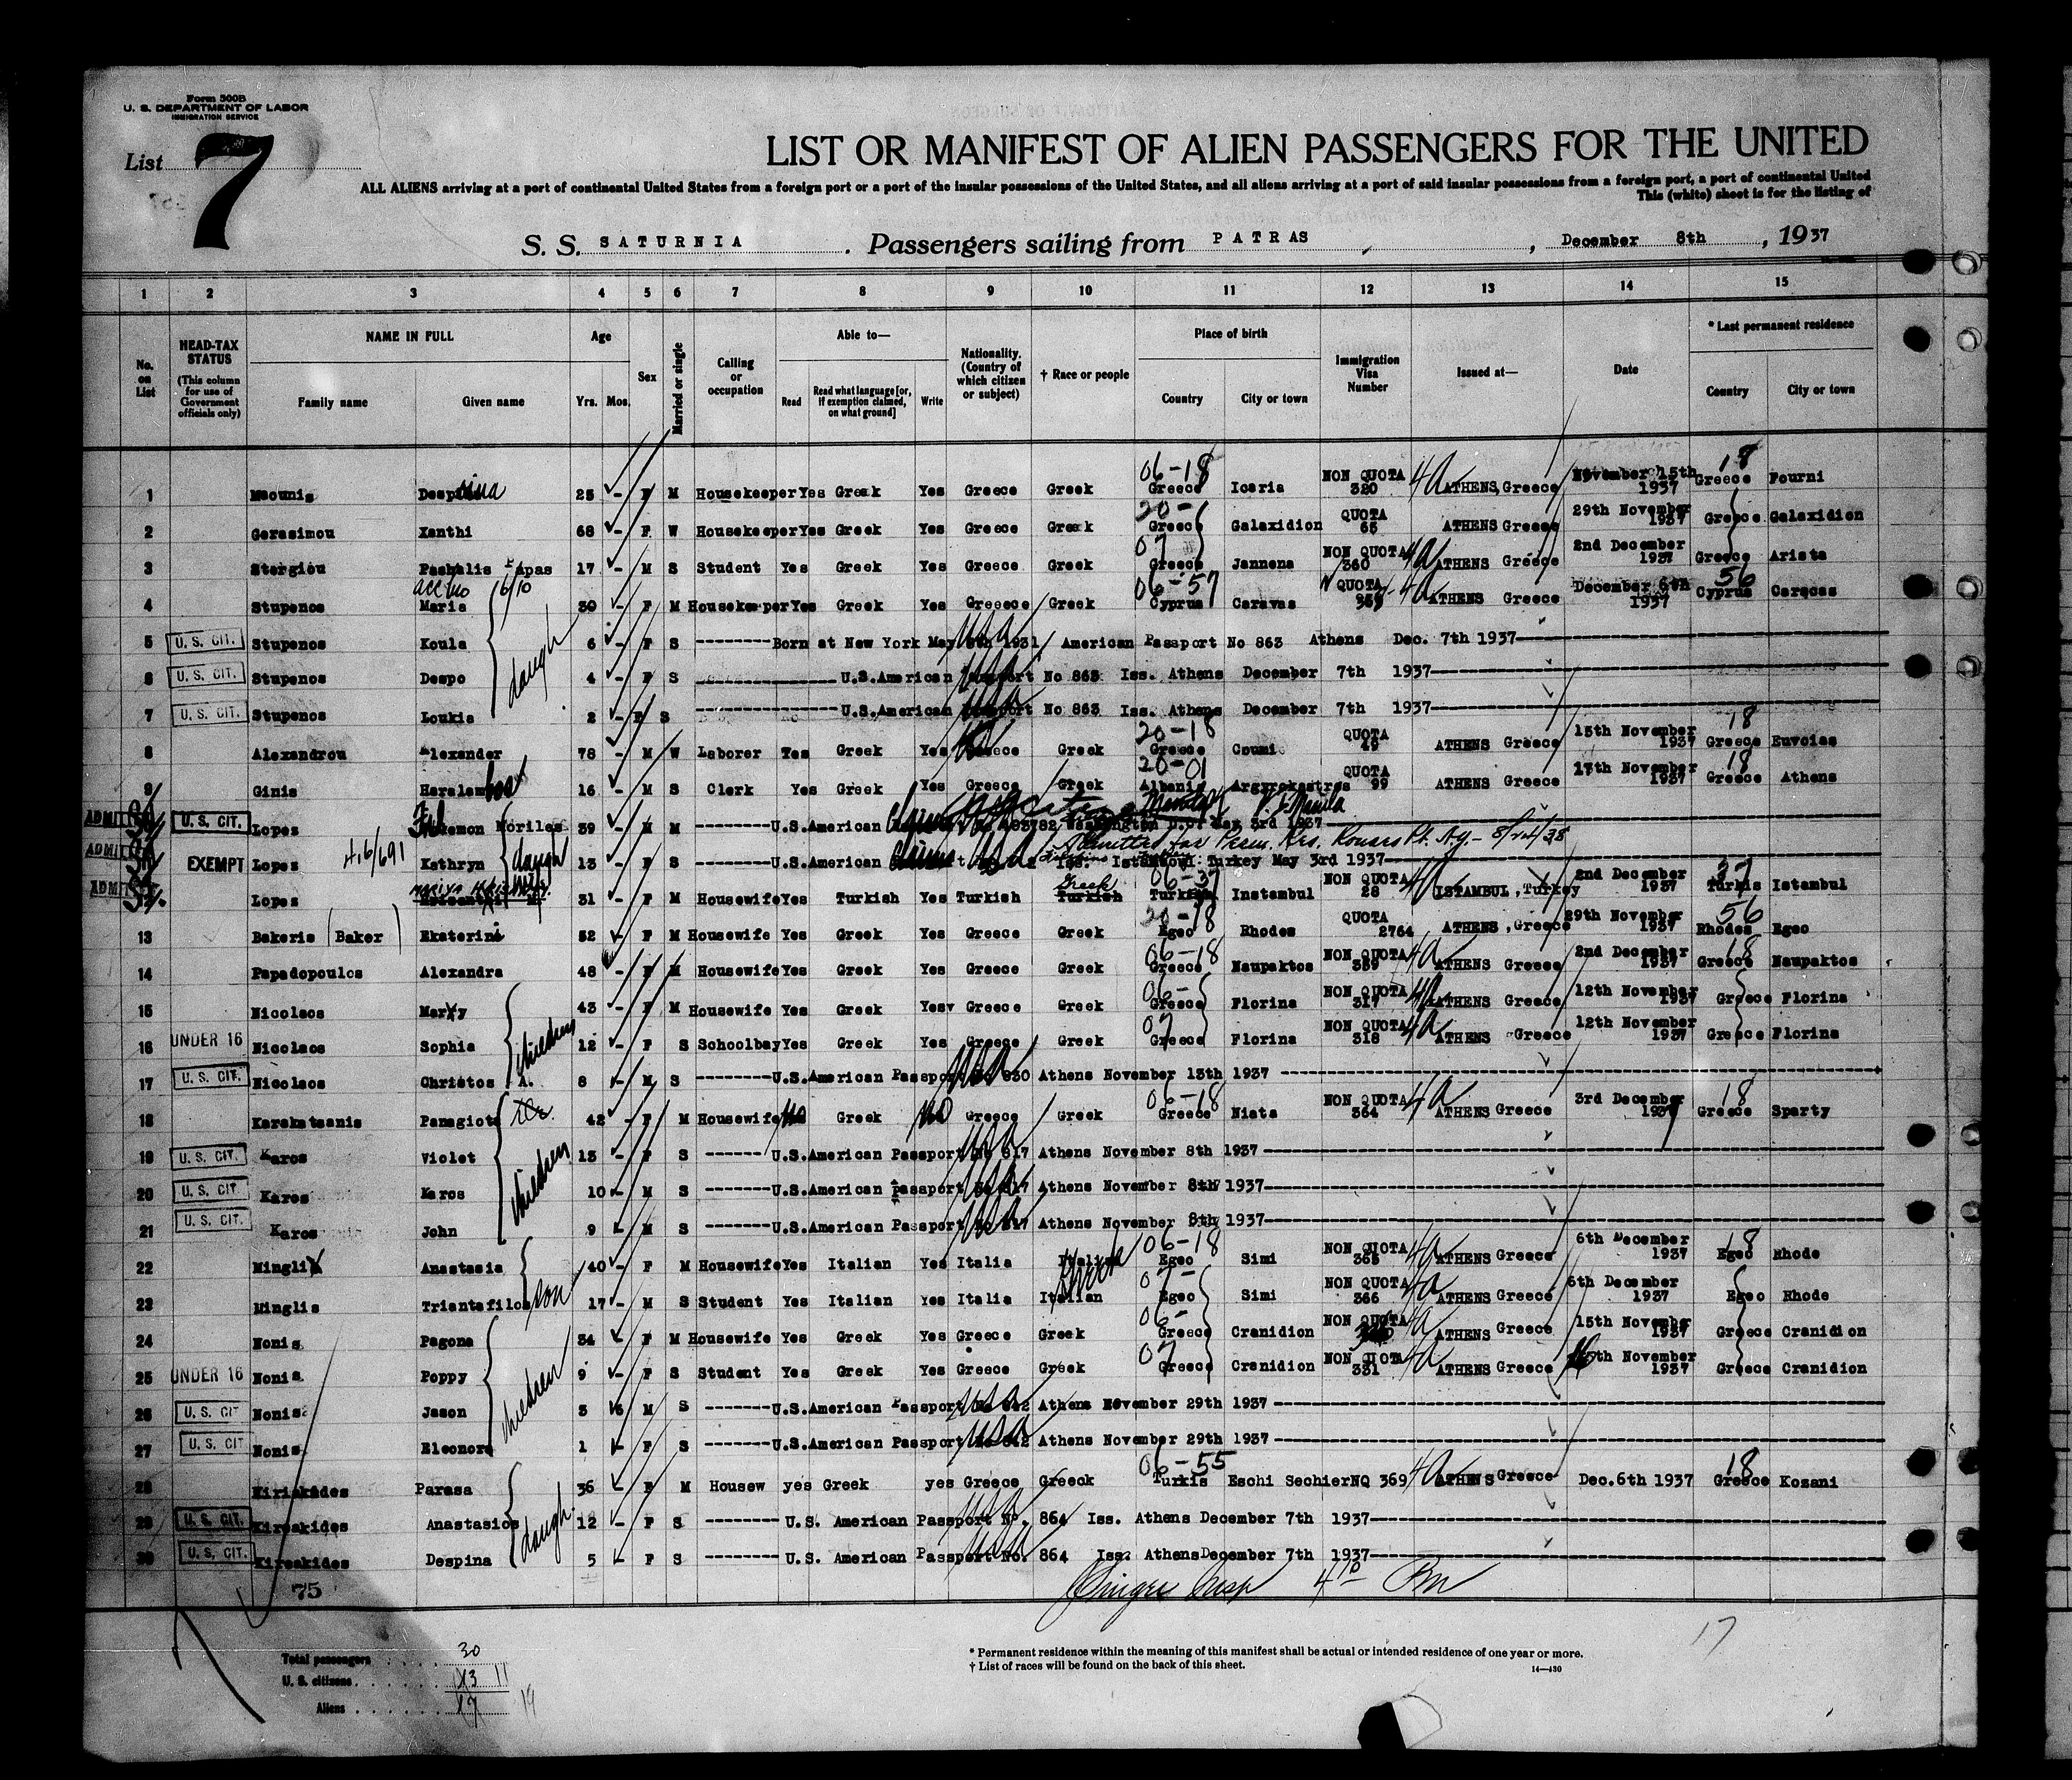 Form 500B
U. S. DEPARTMENT OF LABOR
IMMIGRATION SERVICE
List 7
LIST OR MANIFEST OF ALIEN PASSENGERS FOR THE UNITED
ALL ALIENS arriving at a port of continental United States from a foreign port or a port of the insular possessions of the United States, and all aliens arriving at a port of said insular possessions from a foreign port, a port of continental United
This (white) sheet is for the listing of
S. S. SATURNIA . Passengers sailing from PATRAS , December 8th , 1937
1 2 3 4 5 6 7 8 9 10 11 12 13 14 15
No. on List
HEAD-TAX STATUS (This column for use of Government officials only)
NAME IN FULL Family name Given name
Age Yrs. Mos.
Sex
Married or single
Calling or occupation
Able to— Read Read what language [or, if exemption claimed, on what ground] Write
Nationality. (Country of which citizen or subject)
† Race or people
Place of birth Country City or town
Immigration Visa Number
Issued at—
Date
* Last permanent residence Country City or town
06-18
1 Macunis Despina 25 - F M Housekeeper Yes Greek Yes Greece Greek Greece Icaria NON QUOTA 320 4a ATHENS, Greece November 15th 1937 18 Greece Fourni
20-
2 Gerasimou Xanthi 68 - F W Housekeeper Yes Greek Yes Greece Greek Greece Galaxidion QUOTA 65 ATHENS Greece 29th November 1937 Greece Galaxidion
07
3 Stergiou Pashalis 17 - M S Student Yes Greek Yes Greece Greek Greece Jannena NON QUOTA 360 4a ATHENS Greece 2nd December 1937 Greece Arista
06-57
4 Stupenos Maria 30 - F M Housekeeper Yes Greek Yes Greece Greek Cyprus Caravas N QUOTA 4a ATHENS Greece December 6th 1937 56 Cyprus Caracas
5 U. S. CIT. Stupenos Koula daugh 6 - F S Born at New York May 1931 American Passport No 863 Athens Dec. 7th 1937
6 U. S. CIT. Stupenos Despo 4 - F S U.S.American No 863 Iss. Athens December 7th 1937
7 U. S. CIT. Stupenos Loukia 2 - F S U.S.American No 863 Iss. Athens December 7th 1937
20-18
8 Alexandrou Alexander 78 - M W Laborer Yes Greek Yes Greek Greece Coumi QUOTA 49 ATHENS Greece 15th November 1937 18 Greece Euvoias
20-01
9 Ginis Haralambos 16 - M S Clerk Yes Greek Yes Greece Greek Albania Argyrokastros QUOTA 99 ATHENS Greece 17th November 1937 18 Greece Athens
ADMITTED U. S. CIT. Lopes Moriles 39 - M M U.S.American Washington D.C. May 3rd 1937
Admitted for Perm. Res.
ADMITTED EXEMPT Lopes Kathryn daugh 13 - F S U.S.American Istambul Turkey May 3rd 1937
ADMITTED Lopes wife 31 - F M Housewife Yes Turkish Yes Turkish Greek Turkish Instambul NON QUOTA 28 4a ISTAMBUL, Turkey 2nd December 1937 Turkis Istambul
20-18
13 Bakeris (Baker) Ekaterini 52 - F M Housewife Yes Greek Yes Greece Greek Egeo Rhodes QUOTA 2764 ATHENS, Greece 29th November 1937 56 Rhodes Egeo
06-18
14 Papadopoulos Alexandra 48 - F M Housewife Yes Greek Yes Greece Greek Greece Naupaktos NON QUOTA 359 4a ATHENS Greece 2nd December 1937 18 Greece Naupaktos
06-
15 Nicolaos Mary 43 - F M Housewife Yes Greek Yes Greece Greek Greece Florina NON QUOTA 317 4a ATHENS Greece 12th November 1937 Greece Florina
07
16 UNDER 16 Nicolaos Sophia children 12 - F S Schoolbay Yes Greek Yes Greece Greek Greece Florina NON QUOTA 318 4a ATHENS Greece 12th November 1937 Greece Florina
17 U. S. CIT. Nicolaos Christos A. 8 - M S U.S.American Passport 830 Athens November 13th 1937
06-18
18 Karakatsanis Panagiota 42 - F M Housewife No Greek No Greece Greek Greece Niata NON QUOTA 364 4a ATHENS Greece 3rd December 1937 18 Greece Sparty
19 U. S. CIT. Karos Violet children 13 - F S U.S.American Passport No 817 Athens November 8th 1937
20 U. S. CIT. Karos Karos 10 - M S U.S.American Passport No 817 Athens November 8th 1937
21 U. S. CIT. Karos John 9 - M S U.S.American Passport No 817 Athens November 8th 1937
06-18
22 Minglis Anastasia 40 - F M Housewife Yes Italian Yes Italia Greek Egeo Simi NON QUOTA 365 4a ATHENS Greece 6th December 1937 18 Egeo Rhode
07-
23 Minglis Triantafilos son 17 - M S Student Yes Italian Yes Italia Italian Egeo Simi NON QUOTA 366 4a ATHENS Greece 6th December 1937 Egeo Rhode
06-
24 Nonis Pagona 34 - F M Housewife Yes Greek Yes Greece Greek Greece Cranidion NON QUOTA 4a ATHENS Greece 15th November 1937 Greece Cranidion
07
25 UNDER 16 Nonis Poppy children 9 - F S Student Yes Greek Yes Greece Greek Greece Cranidion NON QUOTA 331 4a ATHENS Greece November 1937 Greece Cranidion
26 U. S. CIT Nonis Jason 3 M S U.S.American Passport No 842 Athens November 29th 1937
27 U. S. CIT Nonis Eleonora 1 - F S U.S.American Passport No 842 Athens November 29th 1937
06-55
28 Kiriakides Parasa 36 - F M Housew yes Greek yes Greece Greeck Turkis Eschi Sechier NQ 369 4a ATHENS Greece Dec.6th 1937 18 Greece Kozani
29 U. S. CIT. Kireakides Anastasios daugh. 12 - F S U.S. American Passport No. 864 Iss. Athens December 7th 1937
30 U. S. CIT. Kireakides Despina 5 - F S U.S. American Passport No. 864 Iss. Athens December 7th 1937
75
Total passengers 30
U. S. citizens 13 11
Aliens 17 19
* Permanent residence within the meaning of this manifest shall be actual or intended residence of one year or more.
† List of races will be found on the back of this sheet.
14—430
17